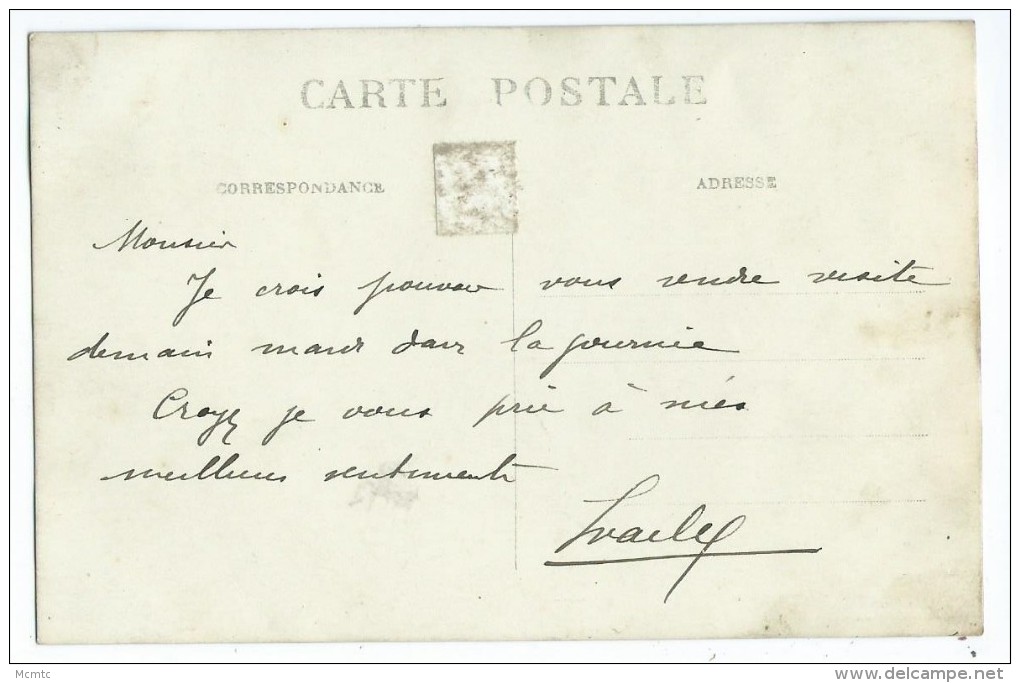 CARTE POSTALE
CORRESPONDANCE
ADRESSE
Monsieur
Je crois pouvoir vous rendre visite
demain mardi dans la journée
Croyez je vous prie à mes
meilleurs sentiments
Mcmtc
www.delcampe.net